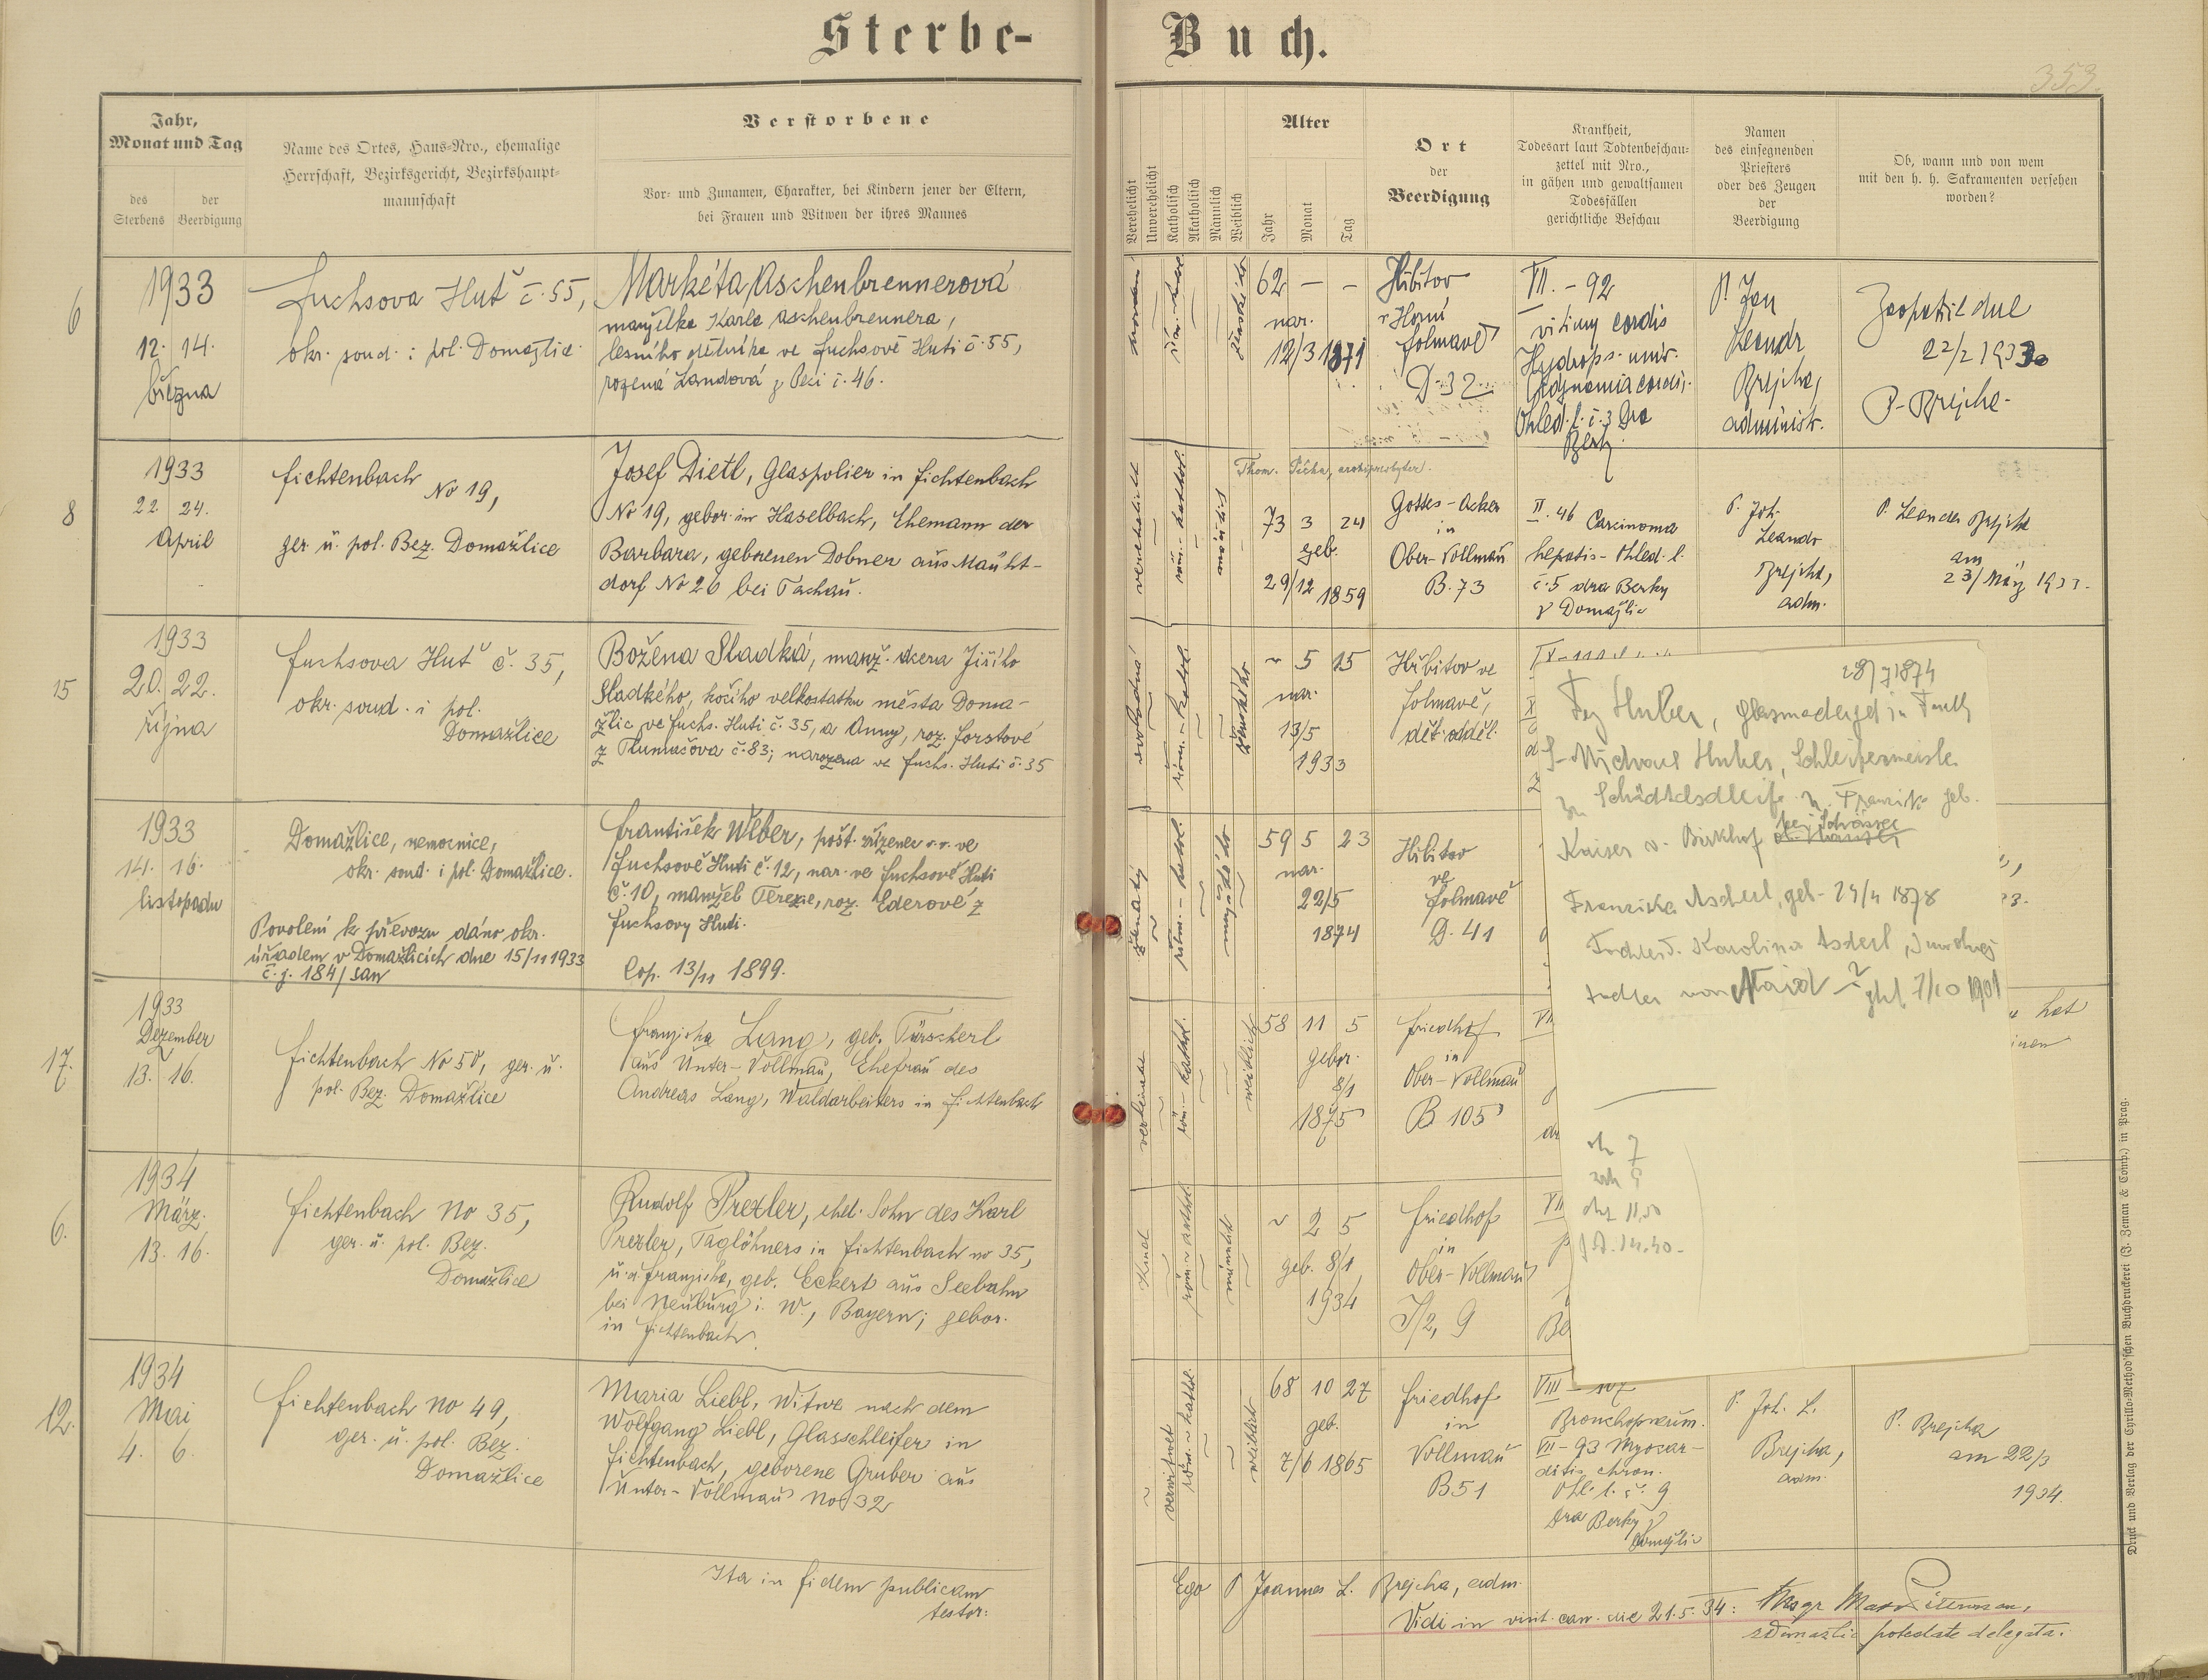 Sterbe-
Buch.
353.
Jahr,
Monat und Tag
des
Sterbens
der
Beerdigung
Name des Ortes, Haus-Nro., ehemalige
Herrschaft, Bezirksgericht, Bezirkshaupt-
mannschaft
Verstorbene
Vor- und Zunamen, Charakter, bei Kindern jener der Eltern,
bei Frauen und Witwen der ihres Mannes
Verehelicht
Unverehelicht
Katholisch
Akatholisch
Männlich
Weiblich
Alter
Jahr
Monat
Tag
Ort
der
Beerdigung
Krankheit,
Todesart laut Todtenbeschau-
zettel mit Nro.,
in gähen und gewaltsamen
Todesfällen
gerichtliche Beschau
Namen
des einsegnenden
Priesters
oder des Zeugen
der
Beerdigung
Ob, wann und von wem
mit den h. h. Sakramenten versehen
worden?
6
1933
12. 14.
března
Fuchsova Huť č. 55,
okr. soud. i pol. Domažlice
Markéta Aschenbrennerová
manželka Karla Aschenbrennera,
lesního dělníka ve Fuchsově Huti č. 55,
rozená Landová z Peci č. 46.
ženského
62 — —
nar.
12/3 1871
Hřbitov
v Horní
Folmavě
D-32
VII. - 92
vitium cordis
Hydrops univ.
Adynamia cordis.
Ohled. l. č. 3 Dra
Berky
P. Jan
Leandr
Brejcha,
administr.
Zaopatřil dne
22/2 1933
P. Brejcha
8
1933
22 24.
April
Fichtenbach
No 19,
ger. u. pol. Bez. Domažlice
Josef Dietl, Glaspolier in Fichtenbach
No 19, gebor. in Haselbach, Ehemann der
Barbara, geborenen Dobner aus Mauht-
dorf No 26 bei Tachau.
verehelicht
röm.-kathol.
männlich
Thom. Pícha, archipresbyter.
73 3 24
geb.
29/12 1859
Gottes-Acker
in
Ober-Vollmau
B. 73
II. 46 Carcinoma
hepatis - Ohled. l.
č. 5 dra Berky
z Domažlic
P. Joh.
Leandr
Brejcha,
adm.
P. Leander Brejcha
am
23/März 1933.
15
1933
20. 22.
října
Fuchsova Huť č. 35,
okr. soud. i pol.
Domažlice
Božena Sladká, manž. dcera Jiřího
Sladkého, kočího velkostatku města Doma-
žlic ve Fuchs. Huti č. 35, a Anny, roz. Forstové
z Tlumačova č. 83; narozena ve Fuchs. Huti č. 35
svobodná
řím.-katol.
ženského
~ 5 15
nar.
13/5
1933
Hřbitov ve
Folmavě,
dět. odděl.
1933
14. 16.
listopadu
Domažlice, nemocnice,
okr. soud. i pol. Domažlice.
Povolení k převozu dáno okr.
úřadem v Domažlicích dne 15/11 1933
č. j. 184/san
František Weber, pošt. zřízenec v. v. ve
Fuchsově Huti č. 12, nar. ve Fuchsově Huti
č. 10, manžel Terezie, roz. Ederové z
Fuchsovy Huti.
Cop. 13/11 1899.
ženatý
řím.-katol.
mužského
59 5 23
nar.
22/5
1874
Hřbitov
ve
Folmavě
D. 41
17.
1933
Dezember
13. 16.
Fichtenbach No 50, ger. u.
pol. Bez. Domažlice
Franziska Lang, geb. Türscherl
aus Unter-Vollmau, Ehefrau des
Andreas Lang, Waldarbeiters in Fichtenbach
röm.-kathol.
weiblich
58 11 5
gebor.
8/1
1875
Friedhof
in
Ober-Vollmau
B 105
hat
6.
1934
März.
13. 16.
Fichtenbach No 35,
ger. u. pol. Bez.
Domažlice
Rudolf Prexler, ehel. Sohn des Karl
Prexler, Taglöhners in Fichtenbach no 35,
u. d. Franziska, geb. Eckert aus Seebahn
bei Neuburg i. W., Bayern; gebor.
in Fichtenbach.
Kind
röm.-kathol.
männlich
~ 2 5
geb. 8/1
1934
Friedhof
in
Ober-Vollmau
I/2, 9
12.
1934
Mai
4. 6.
Fichtenbach No 49,
ger. u. pol. Bez.
Domažlice
Maria Liebl, Witwe nach dem
Wolfgang Liebl, Glasschleifer in
Fichtenbach, geborene Gruber aus
Unter-Vollmau No 32
verwitwet
röm.-kathol.
weiblich
68 10 27
geb.
7/6 1865
Friedhof
in
Vollmau
B 51
VIII - 107
Bronchopneum.
VII - 93 Myocar-
ditis chron.
Ohl. l. č. 9
Dra Berky z
Domažlic
P. Joh. L.
Brejcha,
adm.
P. Brejcha
am 22/3
1934
28/7 1874
Huber,
S. Michael Huber, Schleifermeister
Kaiser v. Birkhof
Franziska Ascherl, geb. 24/4 1878
Karolina
7/10 1901
Ita in fidem publicam
testor:
Ego P. Joannes L. Brejcha, adm.
Vidi in visit. can. die 21. 5. 34:
potestate delegata.
Druck und Verlag der Cyrillo-Method'schen Buchdruckerei (J. Zeman & Comp.) in Prag.